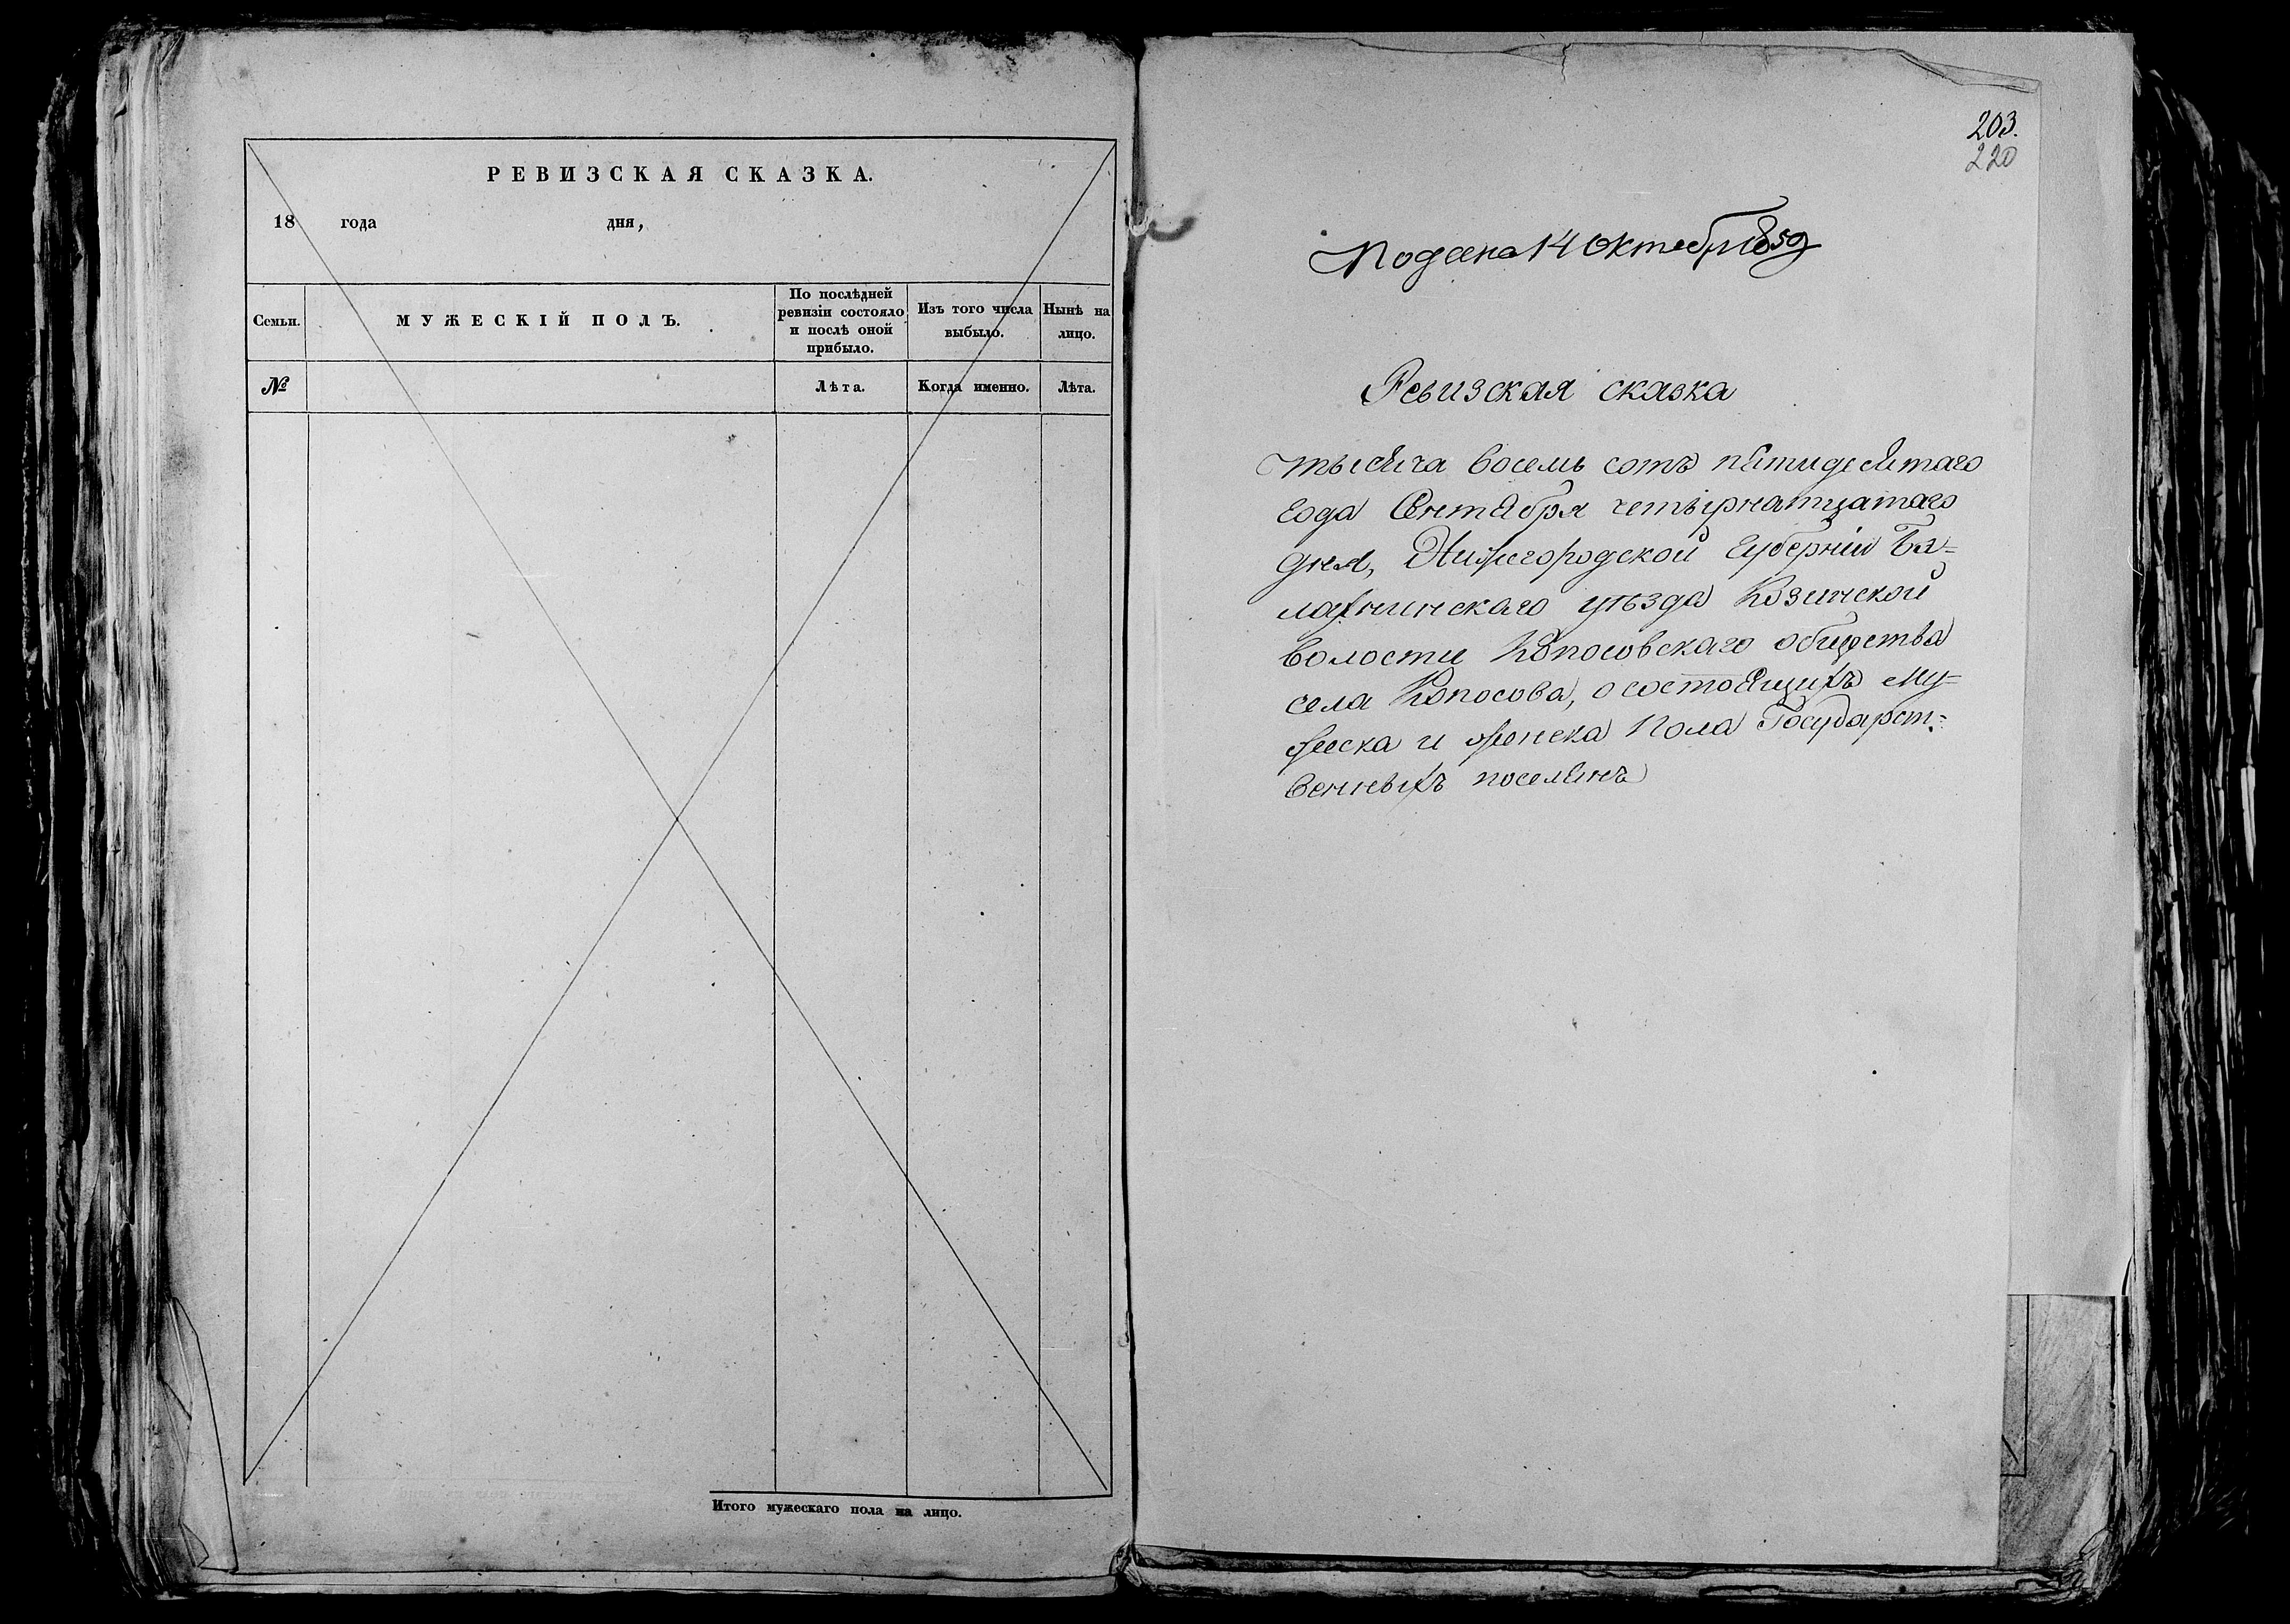 РЕВИЗСКАЯ СКАЗКА.
18 года дня,
Семьи.
МУЖЕСКІЙ ПОЛЪ.
По послѣдней
ревизіи состояло
и послѣ оной
прибыло.
Изъ того числа
выбыло.
Нынѣ на
лицо.
№
Лѣта.
Когда именно.
Лѣта.
Итого мужескаго пола на лицо.
203.
220
Подана 14 Октебря 1850
Ревизская сказка
тысяча восемь сотъ пятидесятаго
года Сентября четырнатцатаго
дня, Нижегородской Губерніи Ба-
лахнинскаго уѣзда Козинской
волости Копосовскаго общества
села Копосова, о состоящихъ му-
жеска и женска пола Государст-
венныхъ поселянъ